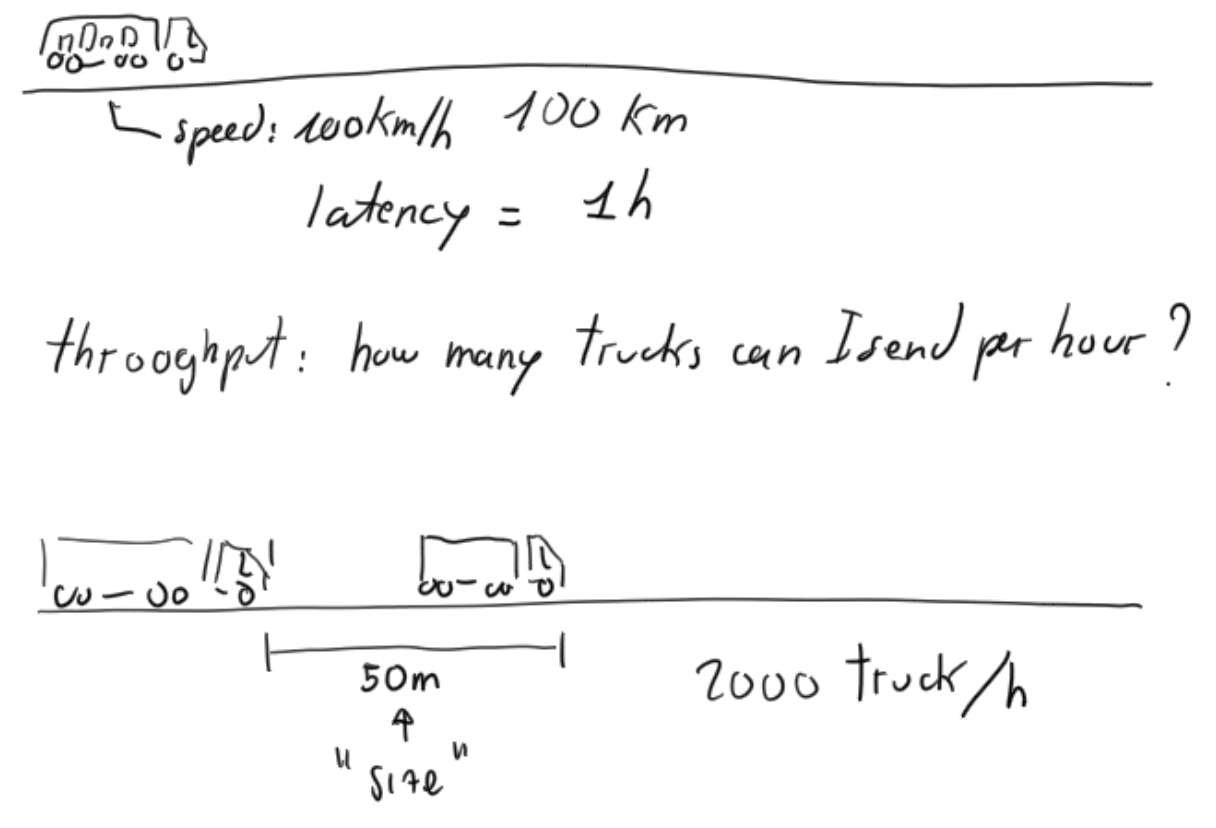 speed: 100km/h 100 km
latency = 1h
throoghput: how many trucks can I send per hour?
50m
2000 truck/h
"size"